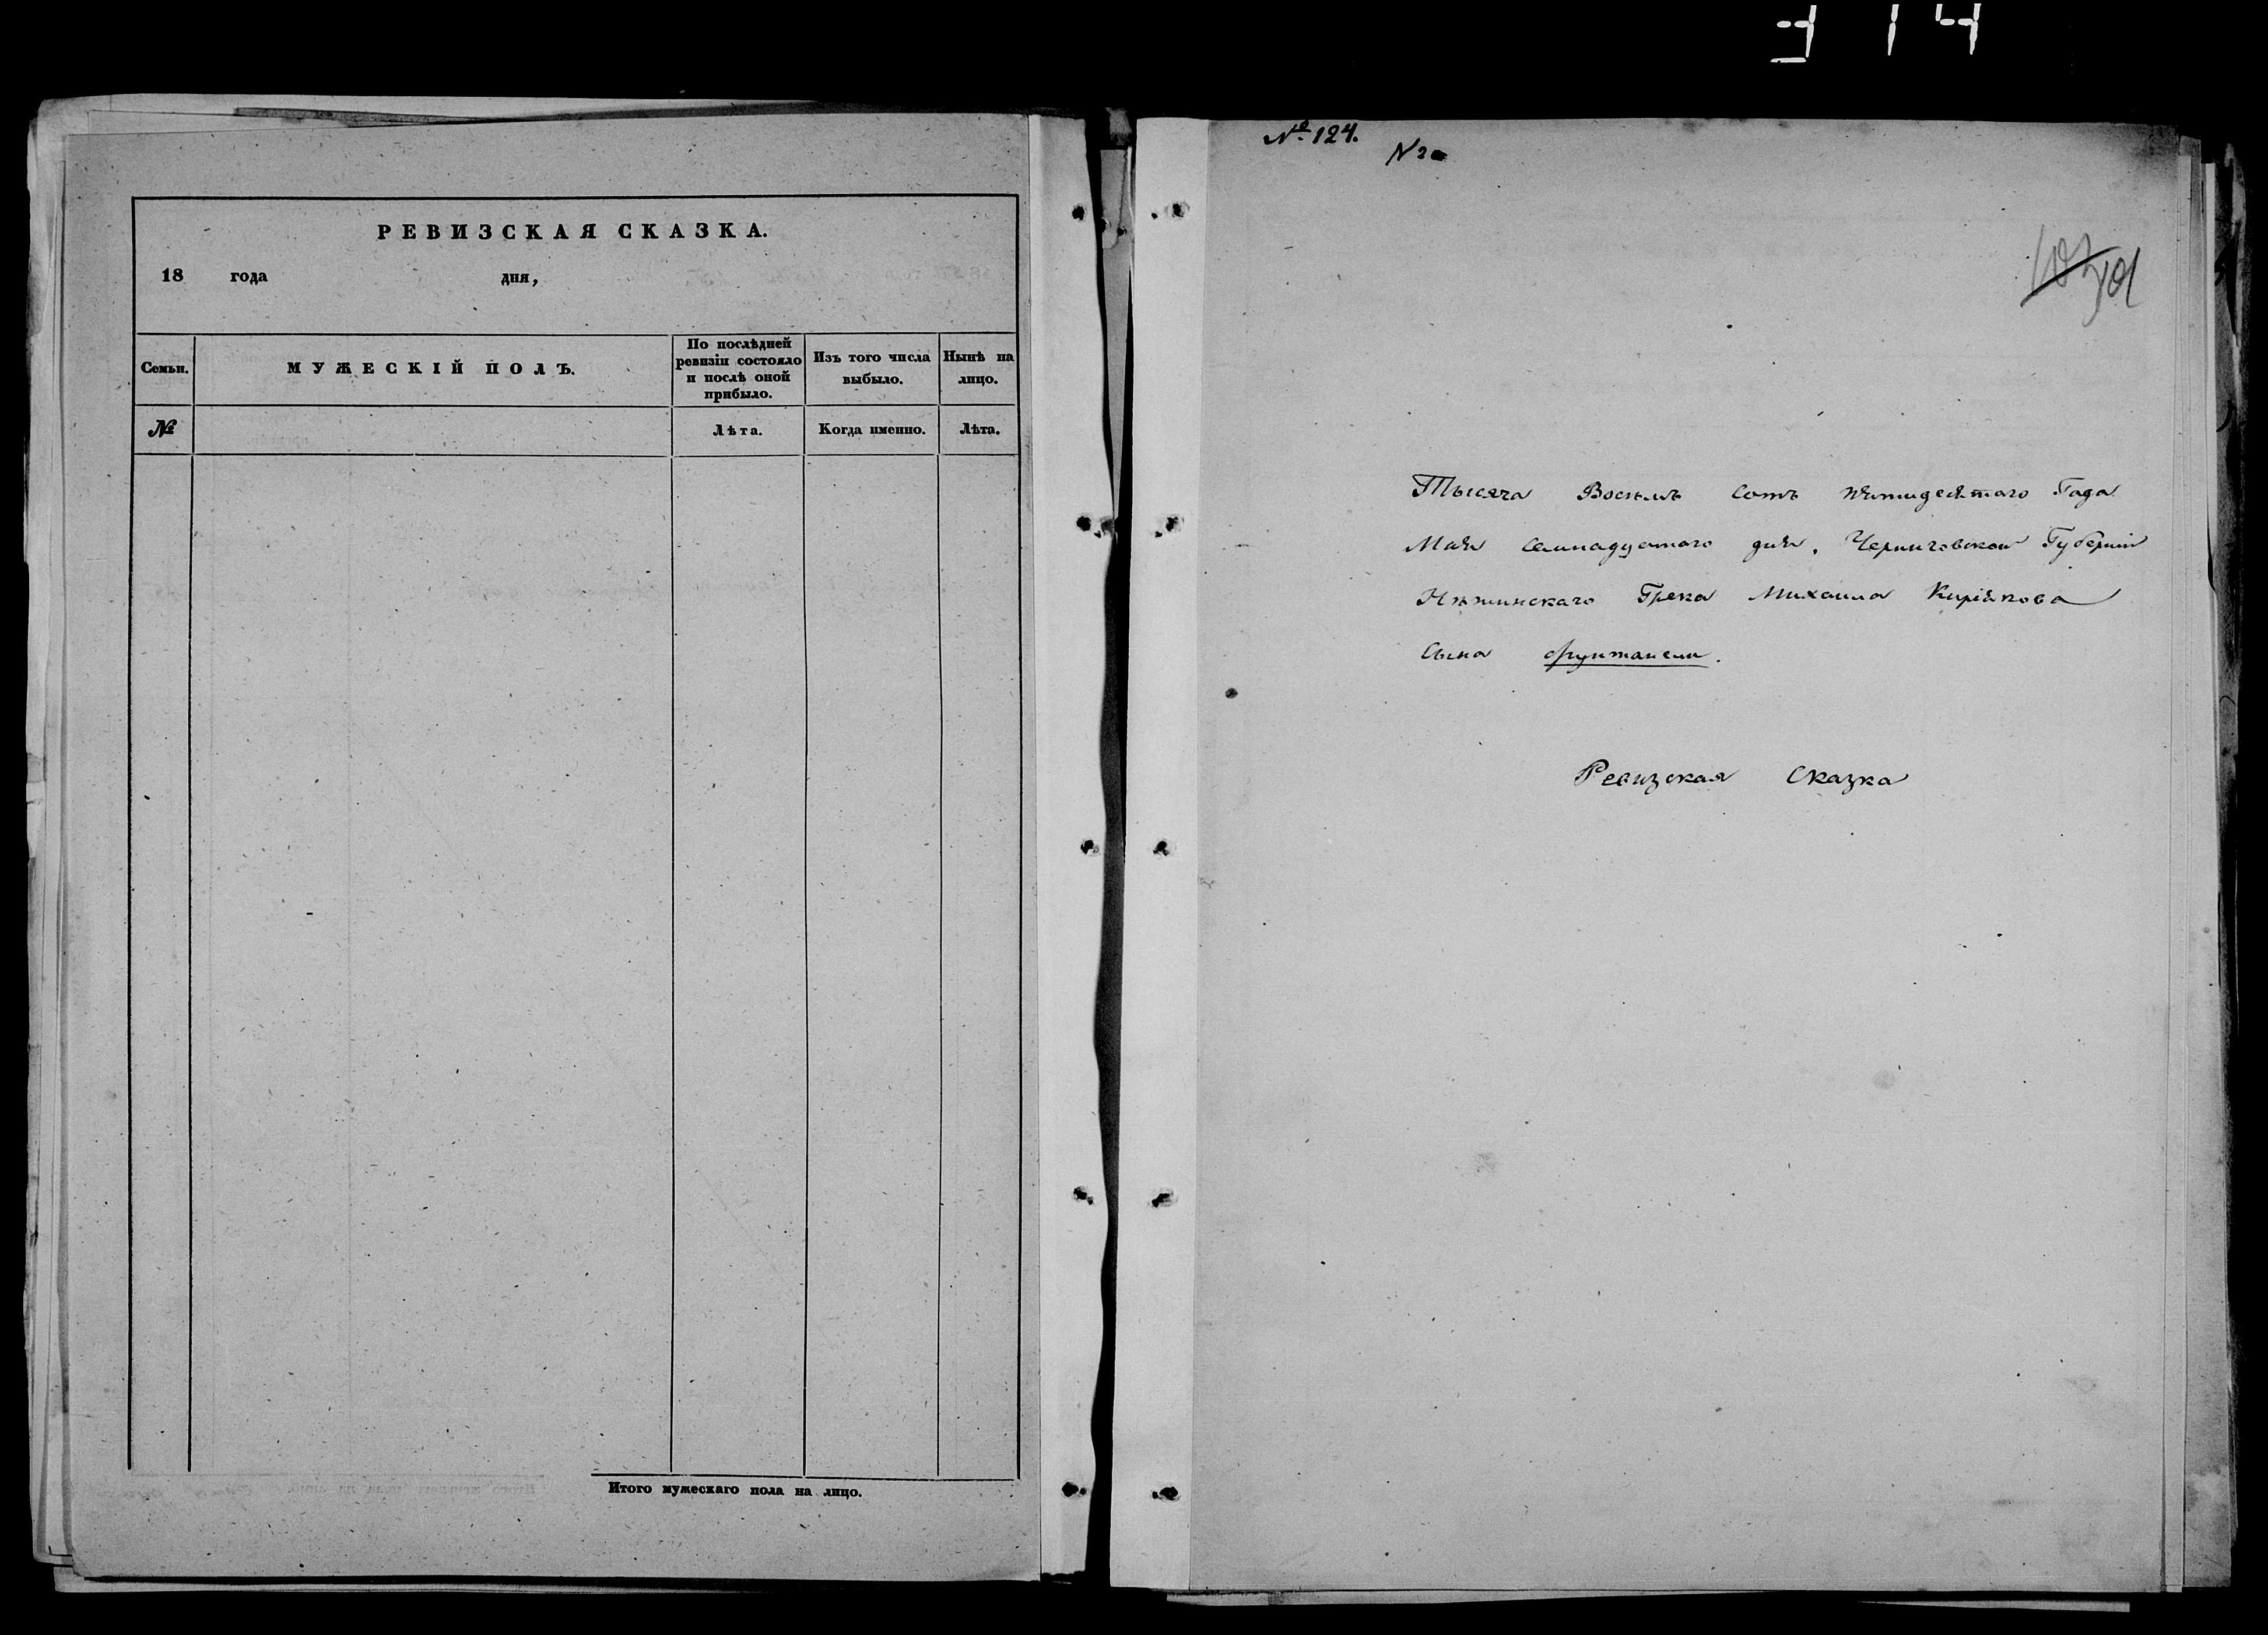 314
РЕВИЗСКАЯ СКАЗКА.
18 года дня,
Семьи.
МУЖЕСКІЙ ПОЛЪ.
По послѣдней
ревизіи состояло
и послѣ оной
прибыло.
Изъ того числа
выбыло.
Нынѣ на
лицо.
№
Лѣта.
Когда именно.
Лѣта.
Итого мужескаго пола на лицо.
№ 124.
Тысяча Восемь сотъ пятидесятаго Года
Мая семнадцатого дня, Черниговской Губерніи
Нѣжинскаго Грека Михаила Киріякова
Сына Фунтанели.
Ревизская Сказка